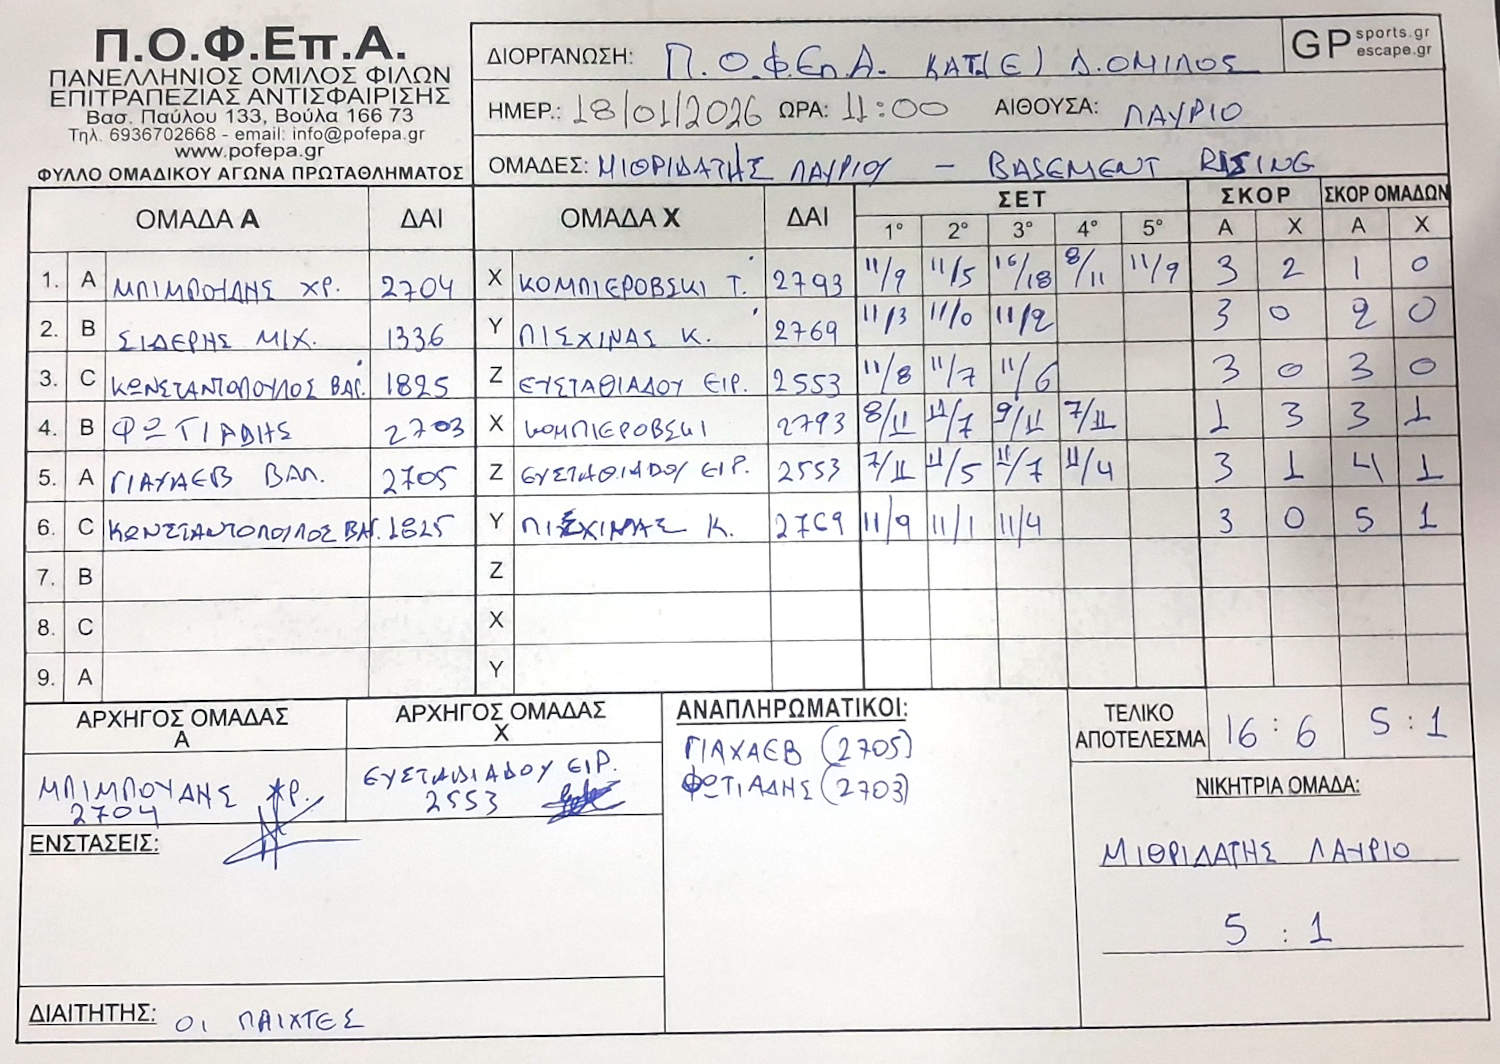 Π.Ο.Φ.Επ.Α.
ΠΑΝΕΛΛΗΝΙΟΣ ΟΜΙΛΟΣ ΦΙΛΩΝ
ΕΠΙΤΡΑΠΕΖΙΑΣ ΑΝΤΙΣΦΑΙΡΙΣΗΣ
Βασ. Παύλου 133, Βούλα 166 73
Τηλ. 6936702668 - email: info@pofepa.gr
www.pofepa.gr
ΦΥΛΛΟ ΟΜΑΔΙΚΟΥ ΑΓΩΝΑ ΠΡΩΤΑΘΛΗΜΑΤΟΣ
ΔΙΟΡΓΑΝΩΣΗ: Π.Ο.Φ.Επ.Α. ΚΑΤ.(Ε) Δ.ΟΜΙΛΟΣ
GP sports.gr
escape.gr
ΗΜΕΡ.: 18/01/2026 ΩΡΑ: 11:00 ΑΙΘΟΥΣΑ: ΛΑΥΡΙΟ
ΟΜΑΔΕΣ: ΜΙΘΡΙΔΑΤΗΣ ΛΑΥΡΙΟΥ - BASEMENT RISING
ΟΜΑΔΑ Α ΔΑΙ ΟΜΑΔΑ Χ ΔΑΙ ΣΕΤ ΣΚΟΡ ΣΚΟΡ ΟΜΑΔΩΝ
1° 2° 3° 4° 5° Α Χ Α Χ
1. A ΜΠΙΜΠΟΥΔΗΣ ΧΡ. 2704 X ΚΟΜΠΙΕΡΟΒΣΚΙ Τ. 2793 11/9 11/5 16/18 8/11 11/9 3 2 1 0
2. B ΣΙΔΕΡΗΣ ΜΙΧ. 1336 Y ΠΙΣΧΙΝΑΣ Κ. 2769 11/3 11/0 11/2 3 0 2 0
3. C ΚΩΝΣΤΑΝΤΟΠΟΥΛΟΣ ΒΑΓ. 1825 Z ΕΥΣΤΑΘΙΑΔΟΥ ΕΙΡ. 2553 11/8 11/7 11/6 3 0 3 0
4. B ΦΩΤΙΑΔΗΣ 2703 X ΚΟΜΠΙΕΡΟΒΣΚΙ 2793 8/11 11/7 9/11 7/11 1 3 3 1
5. A ΓΙΑΧΑΕΒ ΒΑΛ. 2705 Z ΕΥΣΤΑΘΙΑΔΟΥ ΕΙΡ. 2553 7/11 11/5 11/7 11/4 3 1 4 1
6. C ΚΩΝΣΤΑΝΤΟΠΟΥΛΟΣ ΒΑΓ. 1825 Y ΠΙΣΧΙΝΑΣ Κ. 2769 11/9 11/1 11/4 3 0 5 1
7. B Z
8. C X
9. A Y
ΑΡΧΗΓΟΣ ΟΜΑΔΑΣ Α
ΜΠΙΜΠΟΥΔΗΣ ΧΡ.
2704
ΑΡΧΗΓΟΣ ΟΜΑΔΑΣ Χ
ΕΥΣΤΑΘΙΑΔΟΥ ΕΙΡ.
2553
ΑΝΑΠΛΗΡΩΜΑΤΙΚΟΙ:
ΓΙΑΧΑΕΒ (2705)
ΦΩΤΙΑΔΗΣ (2703)
ΤΕΛΙΚΟ ΑΠΟΤΕΛΕΣΜΑ 16 : 6 5 : 1
ΝΙΚΗΤΡΙΑ ΟΜΑΔΑ:
ΜΙΘΡΙΔΑΤΗΣ ΛΑΥΡΙΟ
5 : 1
ΕΝΣΤΑΣΕΙΣ:
ΔΙΑΙΤΗΤΗΣ: ΟΙ ΠΑΙΧΤΕΣ